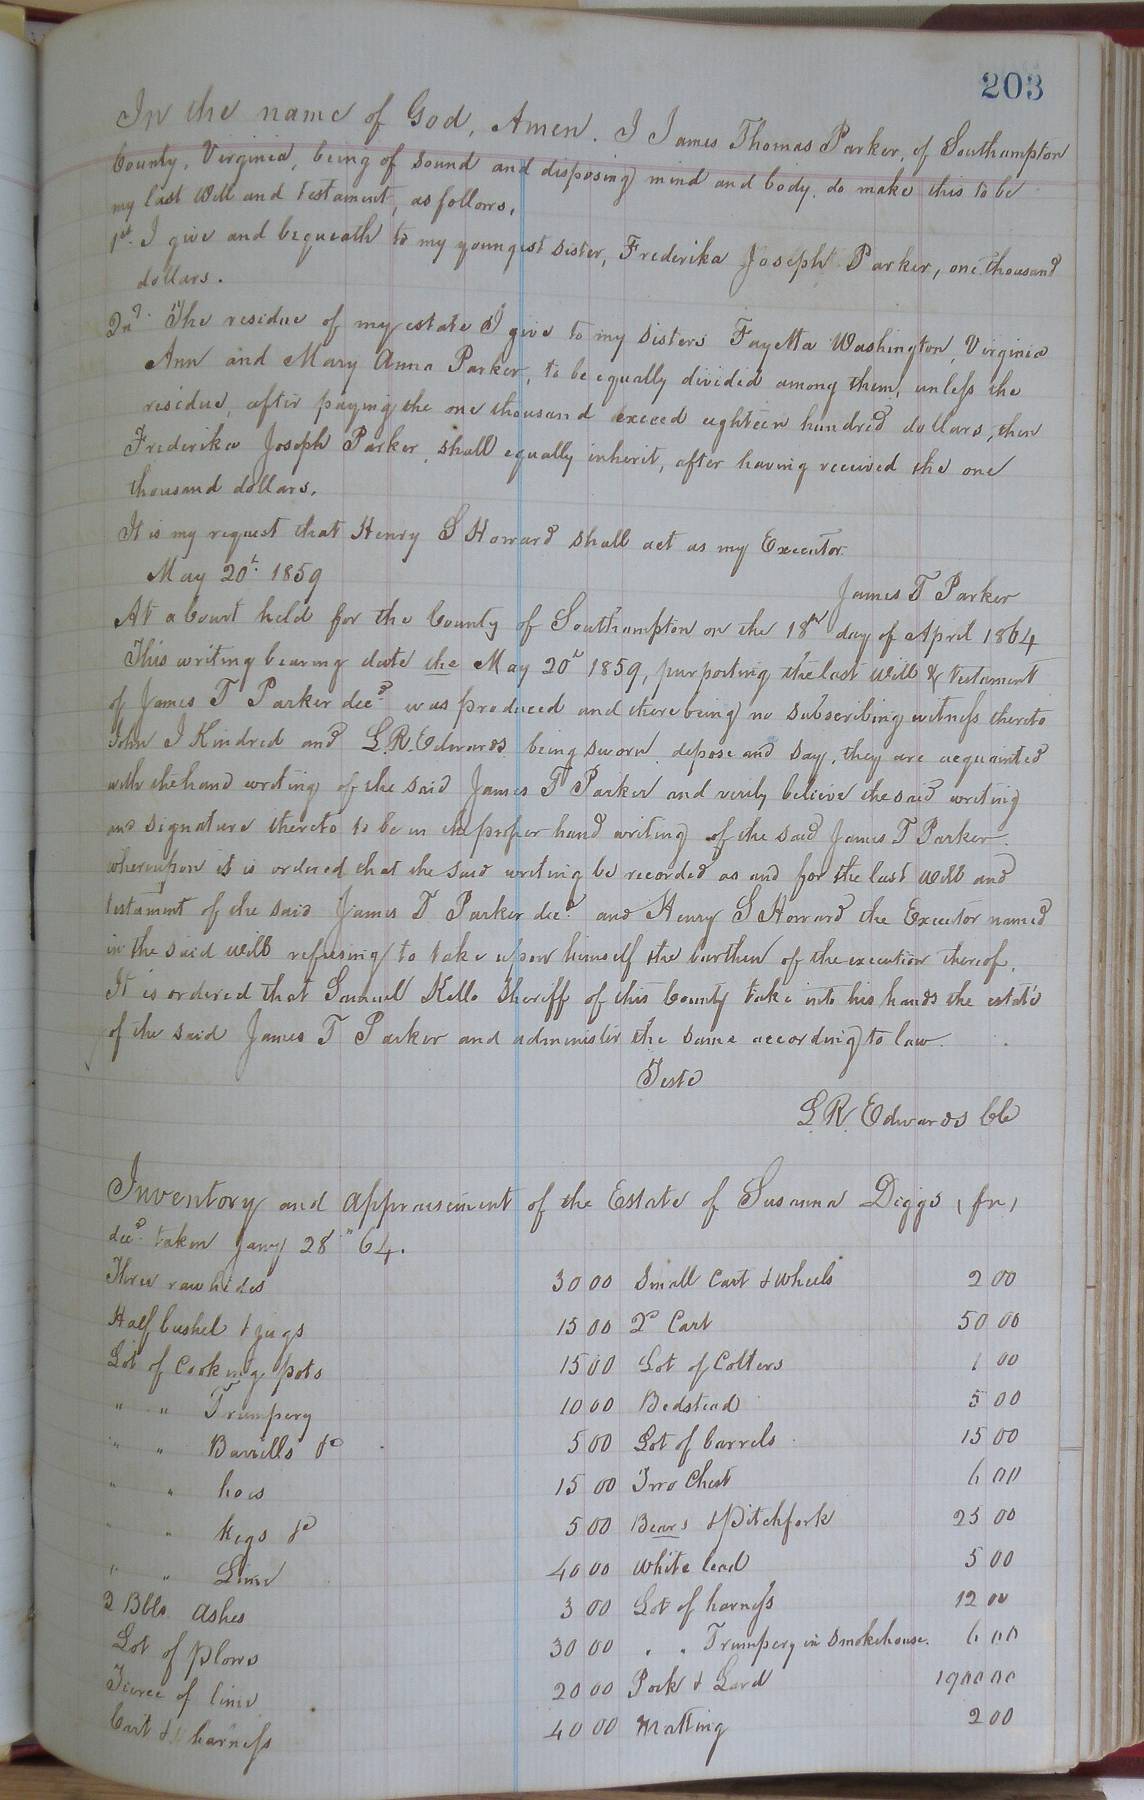 203
In the name of God, Amen. I James Thomas Parker, of Southampton
County, Virginia, being of sound and disposing mind and body, do make this to be
my last Will and Testament, as follows,
1st. I give and bequeath to my youngest sister, Frederika Joseph Parker, one thousand
dollars.
2nd. The residue of my estate I give to my sisters Fayetta Washington, Virginia
Ann and Mary Anna Parker, to be equally divided among them, unless the
residue, after paying the one thousand exceed eighteen hundred dollars, then
Frederika Joseph Parker, shall equally inherit, after having received the one
thousand dollars.
It is my request that Henry S Howard shall act as my Executor.
May 20t. 1859
James T Parker
At a Court held for the County of Southampton on the 18th day of April 1864
This writing bearing date the May 20t 1859, purporting the last Will & testament
of James T Parker decd. was produced and there being no subscribing witness thereto
John J Kindred and L.R. Edwards being sworn depose and say, they are acquainted
with the hand writing of the said James T Parker and verily believe the said writing
and signature thereto to be in the proper hand writing of the said James T Parker.
whereupon it is ordered that the said writing be recorded as and for the last Will and
testament of the said James T Parker decd. and Henry S Howard the Executor named
in the said Will refusing to take upon himself the burthen of the execution thereof.
It is ordered that Samuel Kello Sheriff of this County take into his hands the estate
of the said James T Parker and administer the same according to law.
Teste
L.R. Edwards Clk
Inventory and Appraisement of the Estate of Susanna Diggs (fn)
decd. taken Jany 28" 64.
Three raw hides 30 00 Small Cart & Wheels 2 00
Half bushel & jugs 15 00 Do Cart 50 00
Lot of Cooking pots 15 00 Lot of Colters 1 00
" " Trumpery 10 00 Bedstead 5 00
" " Barrells &c 5 00 Lot of barrels 15 00
" " hoes 15 00 Chest 6 00
" " Kegs &c 5 00 & Pitchfork 25 00
" " 40 00 White lead 5 00
2 Bbls. Ashes 3 00 Lot of harness 12 00
Lot of plows 30 00 " " Trumpery in Smokehouse. 6 00
Tierce of lime 20 00 Pork & Lard 1900 00
Cart & harness 40 00 Matting 2 00